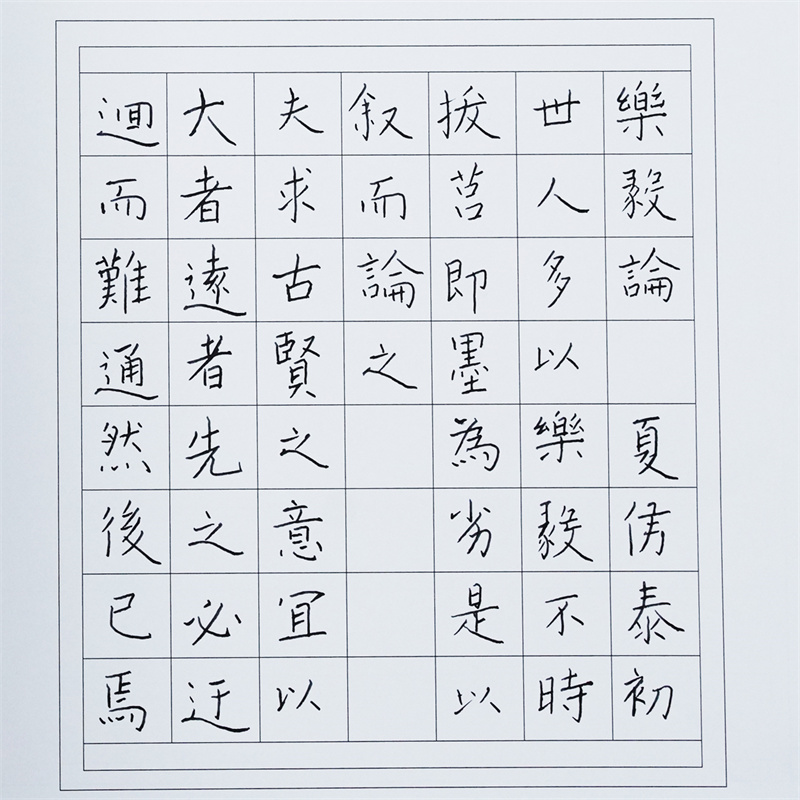 樂毅論 夏侯泰初
世人多以樂毅不時
拔莒即墨為劣是以
叙而論之
夫求古賢之意宜以
大者遠者先之必迂
迴而難通然後已焉